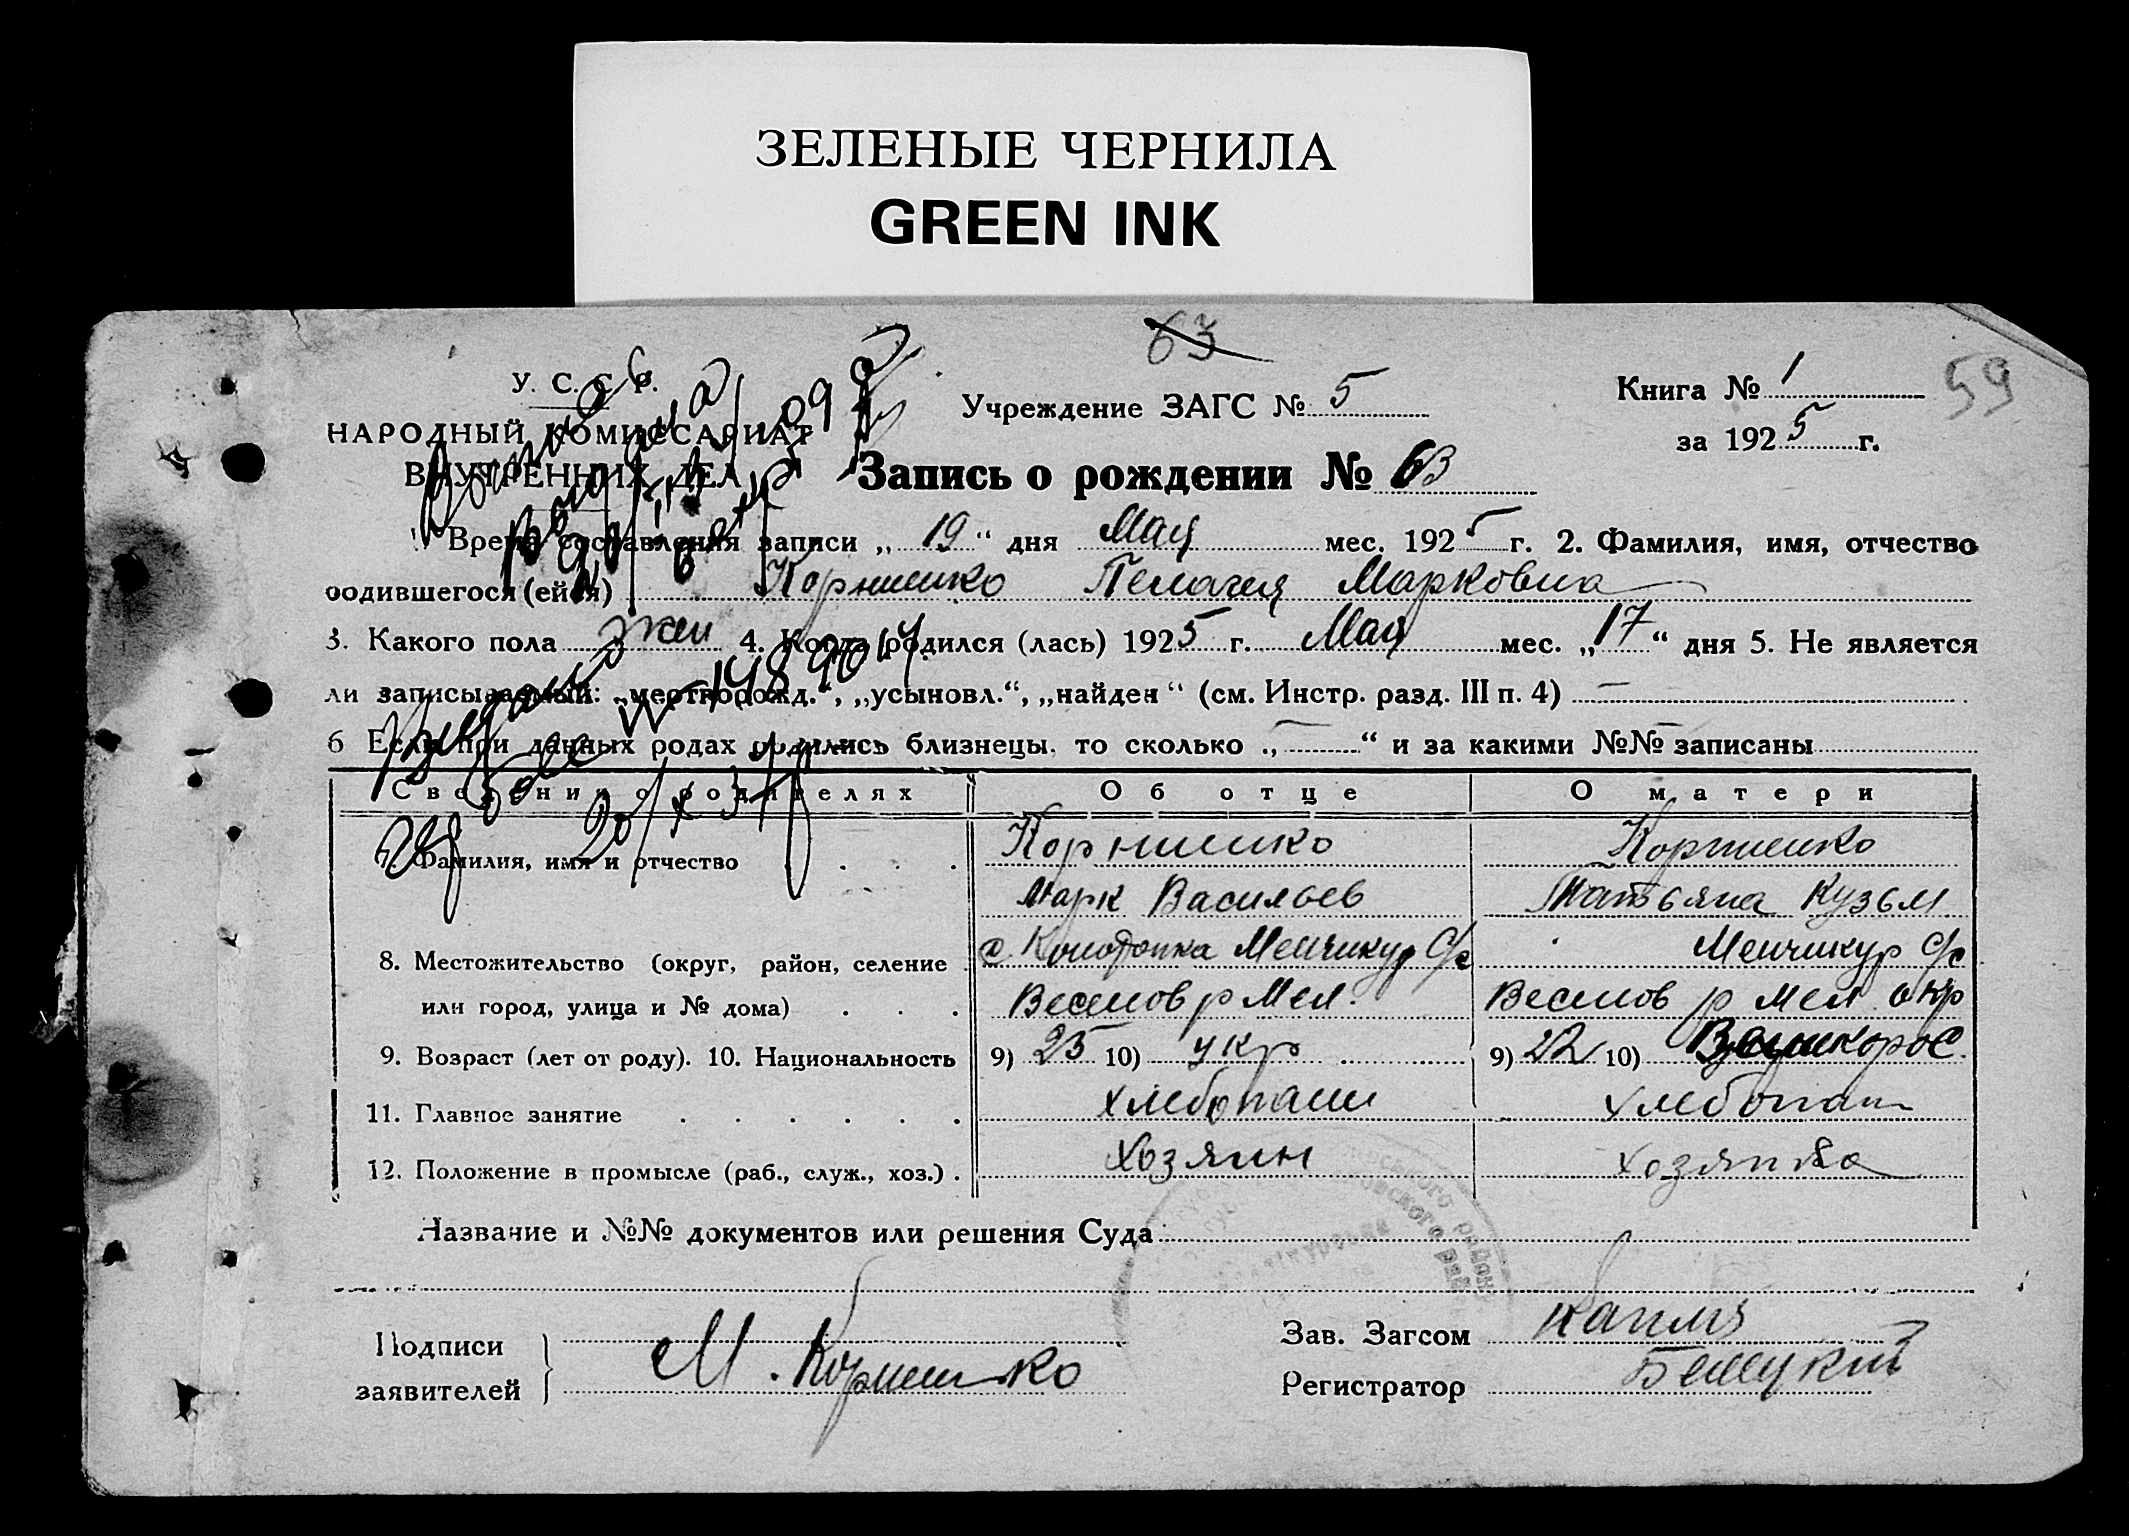 ЗЕЛЕНЫЕ ЧЕРНИЛА
GREEN INK
63
59
У. С. С. Р.
НАРОДНЫЙ КОМИССАРИАТ
ВНУТРЕННИХ ДЕЛ
Учреждение ЗАГС № 5
Книга № 1
за 1925 г.
Запись о рождении № 63
Время составления записи „19“ дня Мая мес. 1925 г. 2. Фамилия, имя, отчество
родившегося (ейся) Корниенко Пелагея Марковна
3. Какого пола жен 4. Когда родился (лась) 1925 г. Мая мес. „17“ дня 5. Не является
ли записываемый: „мертворожд.“, „усыновл.“, „найден“ (см. Инстр. разд. III п. 4) —
6 Если при данных родах родились близнецы, то сколько „—“ и за какими №№ записаны
Сведения о родителях Об отце О матери
7. Фамилия, имя и отчество . . . Корниенко Корниенко
Марк Васильев Татьяна Кузьм
8. Местожительство (округ, район, селение . с Конотопка Менчикур С/с Менчикур С/с
или город, улица и № дома) . . . Веселов р Мел. Веселов р Мел окр
9. Возраст (лет от роду). 10. Национальность 9) 25 10) укр 9) 22 10) Великорос.
11. Главное занятие . . . . . . хлебопаш хлебопаш
12. Положение в промысле (раб., служ., хоз.) . хозяин хозяйка
Название и №№ документов или решения Суда
Подписи
заявителей
М. Корниенко
Зав. Загсом Капля
Регистратор Белецкий